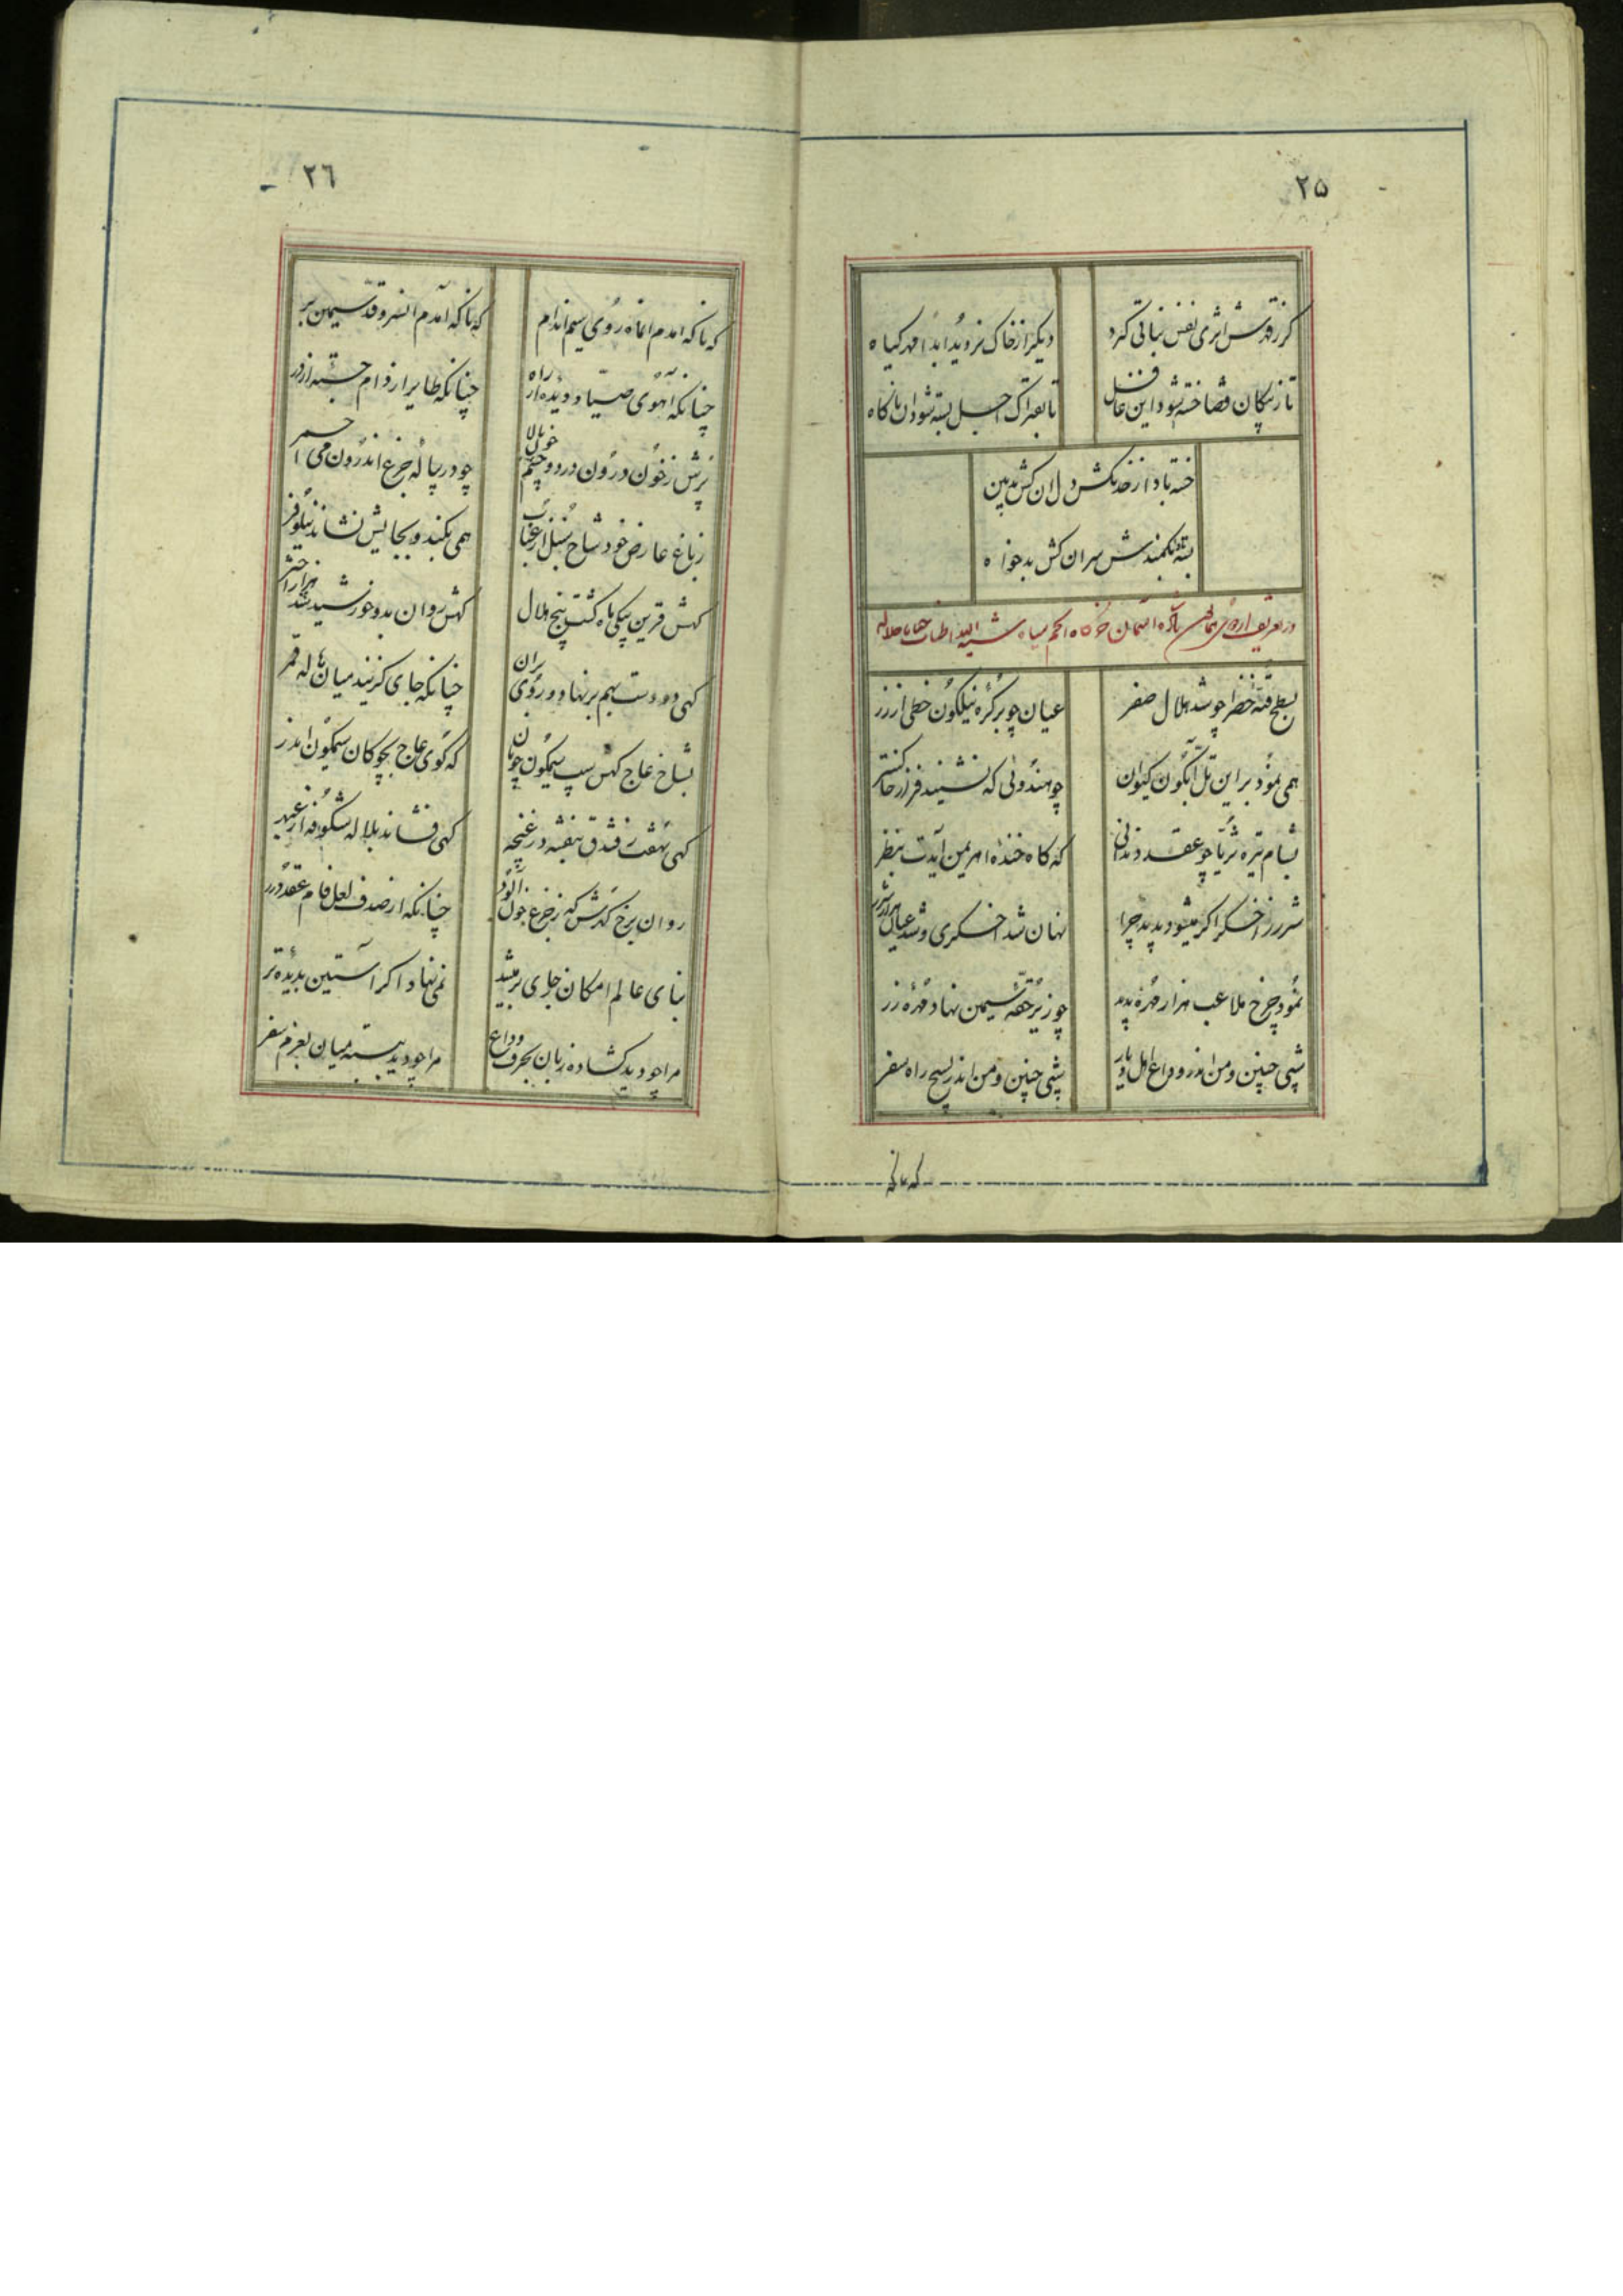 ۲۵
گر ز قدرش اثری نفس نباتی گیرد
دیگر از خاک نروید ابدا مهر گیاه
تا ز پیکان قضا خسته شود این غافل
تا بفتراک اجل بسته شود ان ناگاه
خسته باد از خدنگش دل ان کش بدبین
بسته بکمندش سر ان کش بدخواه
در تعریف اردوی
بسطح قبه خضرا چو شد هلال صفر
عیان چو بر کره نیلگون خطی از زر
همی نمود بر این تل آبگون کیوان
چو هندوئی که نشیند فراز خاکستر
بشام تیره ثریا چو عقد دندانی
که گاه خنده اهریمن آیدت بنظر
شرر ز اخگر اگر میشود پدید چرا
نهان شد اخگری و شد عیان هزار شرر
نمود چرخ ملاعب هزار مهره پدید
چو زیر حقه سیمین نهاد مهره زر
شبی چنین و من اندر وداع اهل و دیار
شبی چنین و من اندر بسیج راه سفر
که ناگه
۲۶
که ناگه امدم انماه روی سیم اندام
که ناگه آمدم انسرو قد سیمین بر
چنانکه آهوی صیاد دیده از راه
چنانکه طایر از دام جسته از در
پرش ز خون درون در دو چشم خون پالا
چو در پیاله جزع اندرون می احمر
ز باغ عارض خود شاخ سنبل از عناب
همی بکند و بجایش نشاند نیلوفر
گهش قرین یکی ماه گشت پنج هلال
گهش روان بدو خورشید شد هزار اختر
گهی دو دست بهم بر نهاد و روی بران
چنانکه جای گزیند میان هاله قمر
بشاخ عاج گهش سیب سیمگون چونان
که گوی عاج بچوگان سیمگون اندر
گهی نهفت ز فندق بنفشه در غنچه
گهی فشاند بلاله شگوفه از عبهر
روان برخ گهرش که ز جزع خون آلود
چنانکه از صدف لعل فام عقد درر
بنای عالم امکان ز جای بر میشد
نمی نهاد اگر آستین بدیده تر
مرا چو دید گشاده زبان بحرف وداع
مرا چو دید ببسته میان بعزم سفر